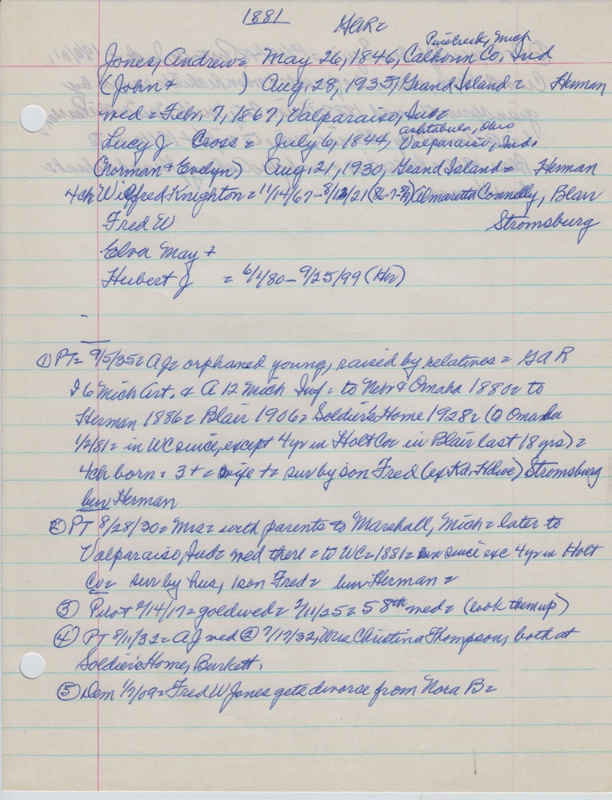 1881
GAR=
Pinecreek, Mich
Jones, Andrew= May 26, 1846, Calhoun Co, Ind
(John + ) Aug. 28, 1935, Grand Island= Herman
med = Febr. 7, 1867, Valparaiso, Ind=
Ashtabula, Ohio
Lucy J Cross = July 6, 1844, Valparaiso, Ind.
(Norman & Evelyn) Aug. 21, 1930, Grand Island= Herman
4ch Wilfred Knighton = 11/14/67- Almaretta Connelly, Blair
Fred W Stromsburg
Elva May +
Hubert J = 6/1/80 - 9/25/99 (Her)
① PT= 9/5/35= AJ= orphaned young, raised by relatives = GAR
I 6 Mich Art. & A 12 Mich Inf= to Nebr & Omaha 1880= to
Herman 1886= Blair 1906= Soldier's Home 1928= (to Omaha
1/2/81= in WC since, except 4yr in Holt Co= in Blair last 18 yrs)=
4ch born = 3+= wife += sur by son Fred (ex Kd. Hdwe) Stromsburg
bur Herman
② PT 8/28/30= Mrs= with parents to Marshall, Mich= later to
Valparaiso, Ind= med there= to WC=1881= since exc 4yr in Holt
Co= sur by hus, 1 son Fred= bur Herman=
③ Pilot 2/14/17= gold wed= 2/11/25= 58th wed= (look them up)
④ PT 8/11/32= AJ med @ 7/17/32, Mrs Christina Thompson, both at
Soldier's Home, Burkett.
⑤ Dem 1/7/09= Fred W Jones gets divorce from Nora B=